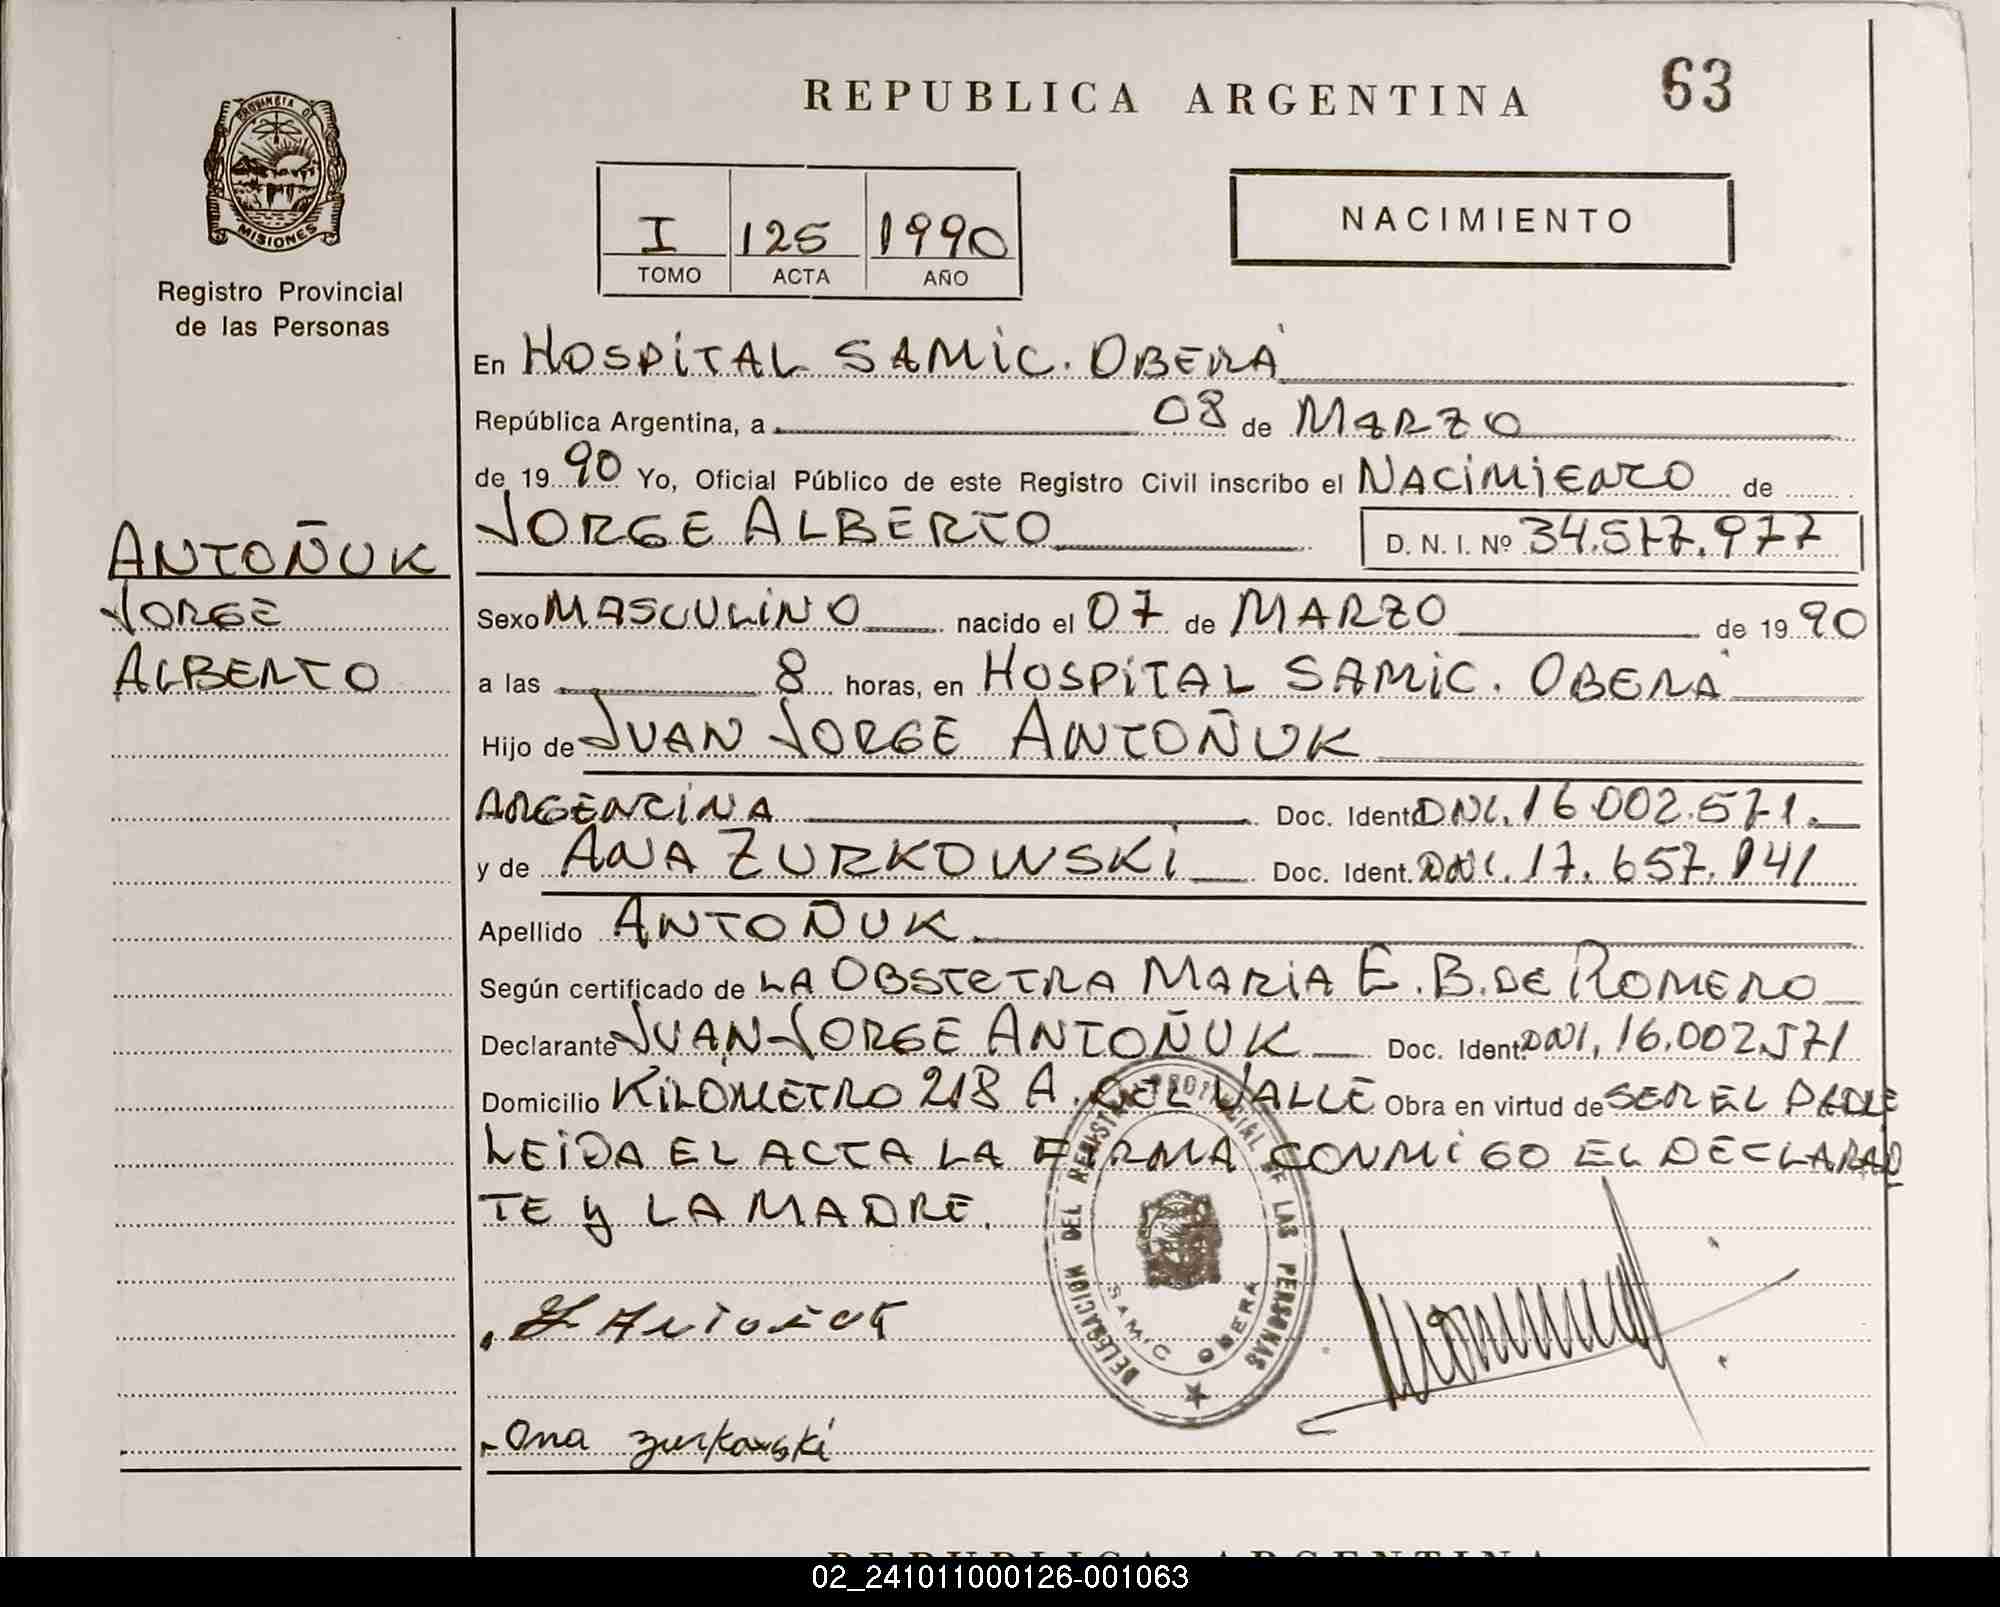 REPUBLICA ARGENTINA 63
PROVINCIA DE
MISIONES
Registro Provincial
de las Personas
I 125 1990
TOMO ACTA AÑO
NACIMIENTO
En HOSPITAL SAMIC. OBERÁ
República Argentina, a 08 de MARZO
de 1990 Yo, Oficial Público de este Registro Civil inscribo el NACIMIENTO de
JORGE ALBERTO D. N. I. Nº 34.577.977
ANTOÑUK
JORGE
ALBERTO
Sexo MASCULINO nacido el 07 de MARZO de 1990
a las 8 horas, en HOSPITAL SAMIC. OBERÁ
Hijo de JUAN JORGE ANTOÑUK
ARGENTINA Doc. Ident. DNI. 16.002.571.
y de ANA ZURKOWSKI Doc. Ident. DNI. 17.657.141
Apellido ANTOÑUK
Según certificado de LA OBSTETRA MARIA E. B. DE ROMERO
Declarante JUAN JORGE ANTOÑUK Doc. Ident. DNI. 16.002.571
Domicilio KILÓMETRO 218 A. DEL VALLE Obra en virtud de SER EL PADRE
LEIDA EL ACTA LA FIRMA CONMIGO EL DECLARAN
TE y LA MADRE.
DELEGACION DEL REGISTRO PROVINCIAL DE LAS PERSONAS
SAMIC OBERA
Ana Zurkowski
REPUBLICA ARGENTINA
02_241011000126-001063